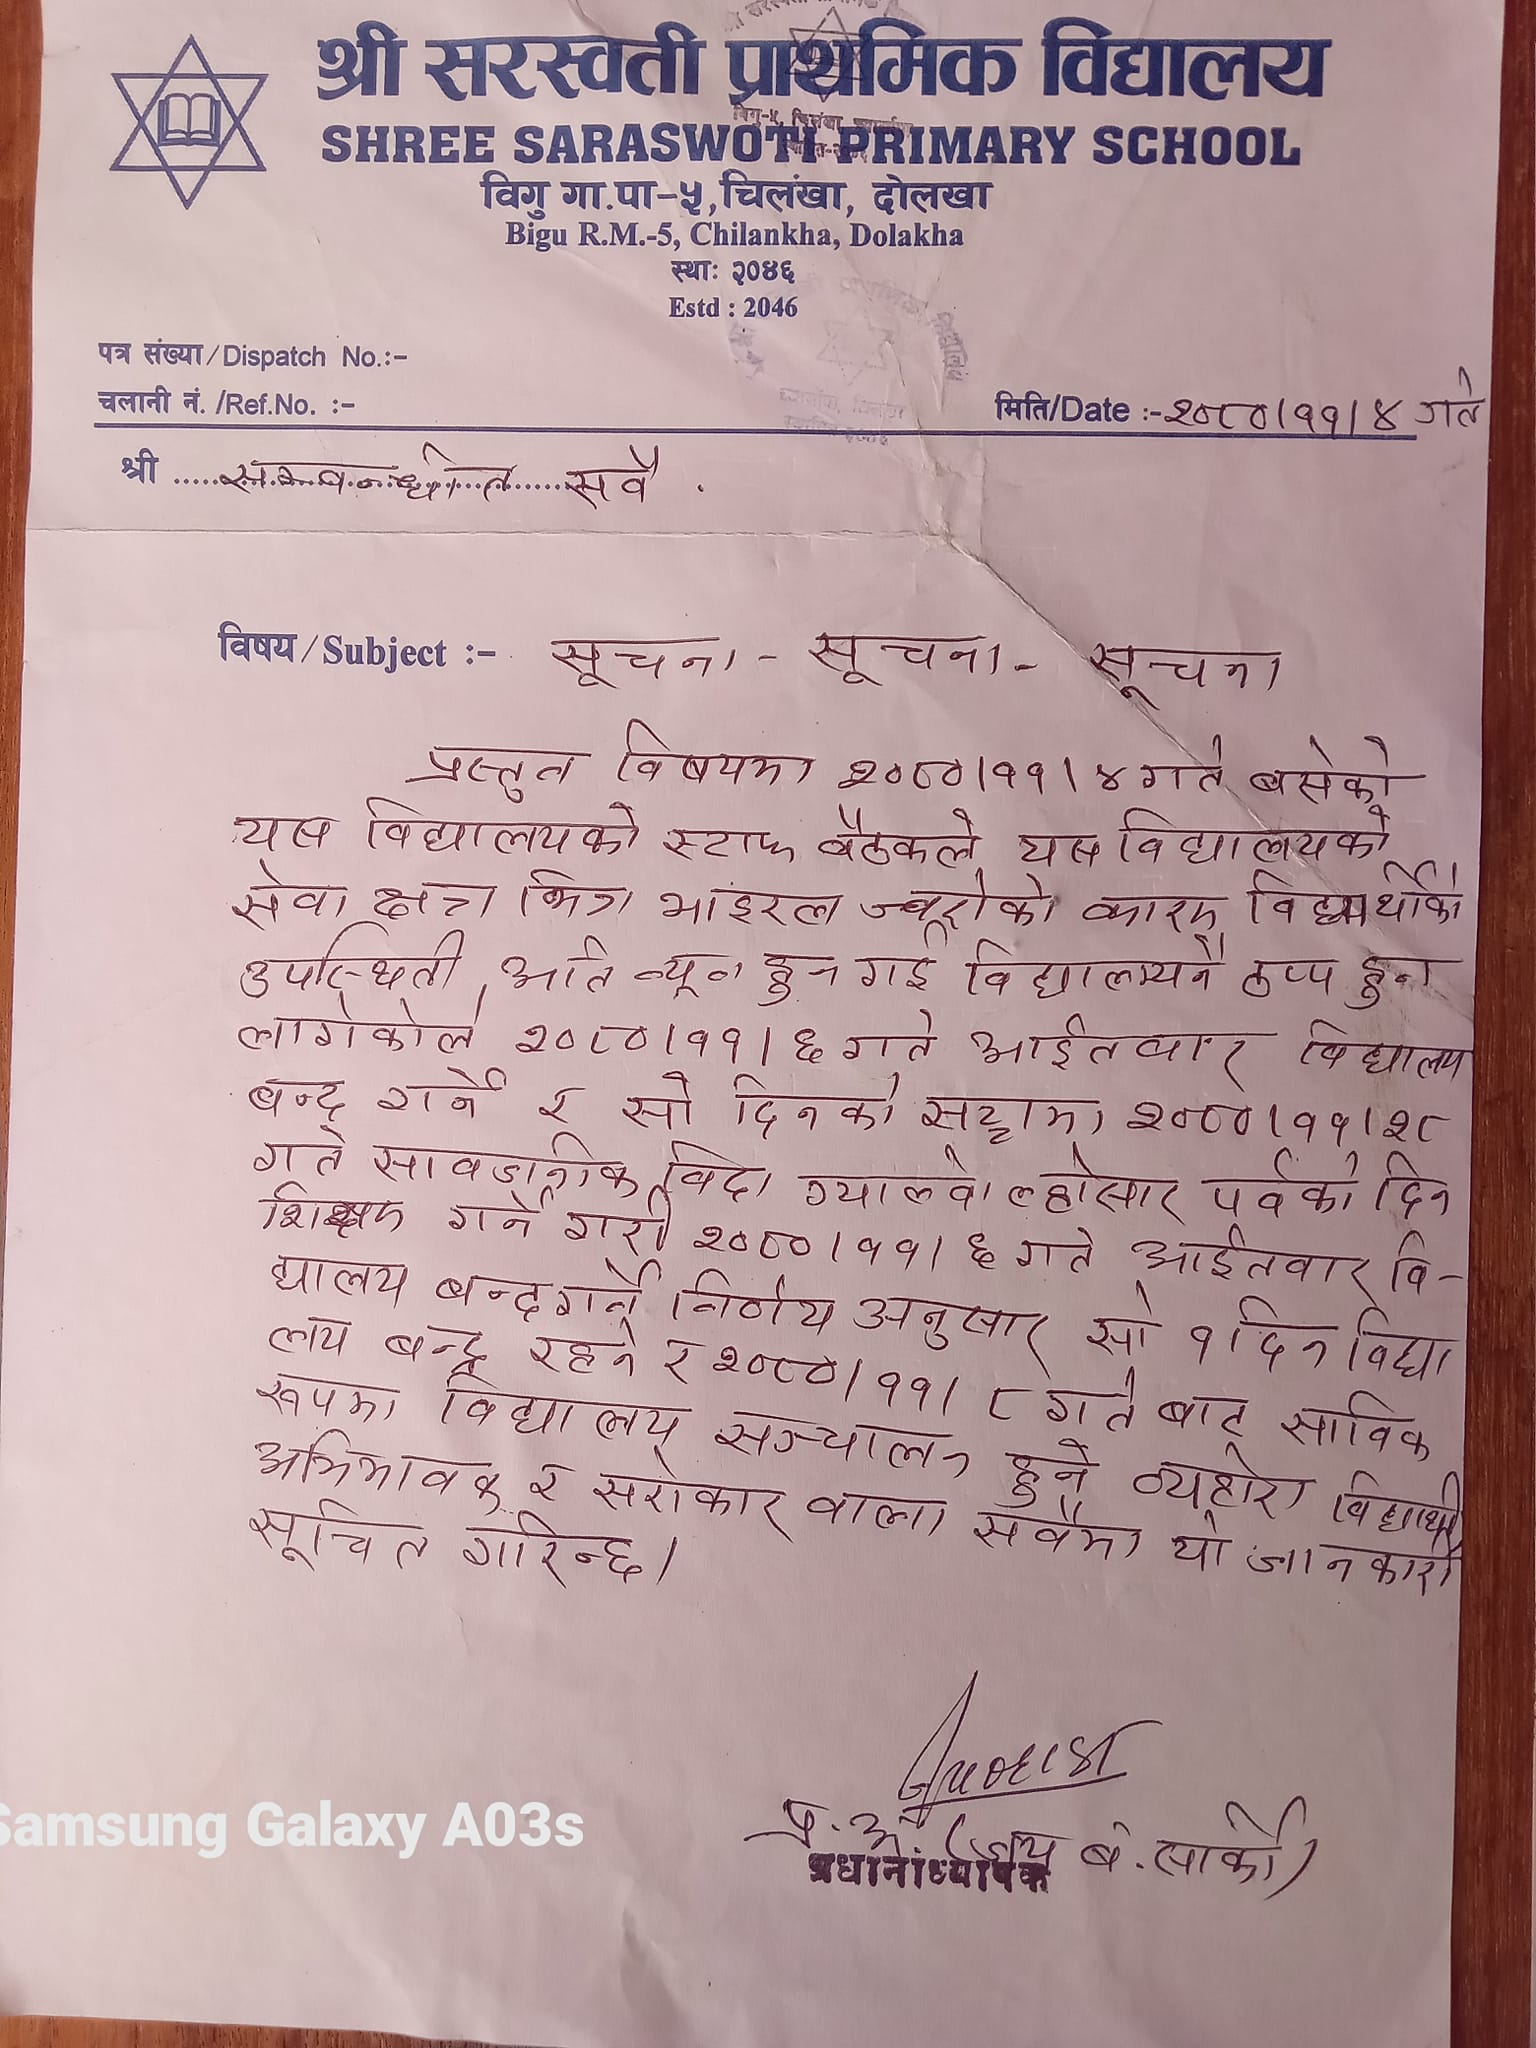 श्री सरस्वती प्राथमिक विद्यालय
SHREE SARASWOTI PRIMARY SCHOOL
विगु गा.पा-५,चिलंखा, दोलखा
Bigu R.M.-5, Chilankha, Dolakha
स्था: २०४६
Estd : 2046
पत्र संख्या/Dispatch No.:-
चलानी नं. /Ref.No. :-
मिति/Date :-२०८०।११।४ गते
श्री सम्बन्धीत सवै .
विषय/Subject :- सूचना - सूचना - सूचना
प्रस्तुत विषयमा २०८०।११।४ गते बसेको
यस विद्यालयको स्टाफ बैठकले यस विद्यालयको
सेवा क्षेत्र भित्र भाइरल ज्वरोको कारण विद्यार्थीको
उपस्थिती अति न्यून हुन गई विद्यालयनै ठप्प हुन
लागेकोले २०८०।११।६ गते आईतवार विद्यालय
बन्द गर्ने र सो दिनको सट्टामा २०८०।११।२८
गते सार्वजानिक विदा ग्याल्वो ल्होसार पर्वको दिन
शिक्षण गर्ने गरी २०८०।११।६ गते आईतवार वि-
द्यालय बन्द गर्ने निर्णय अनुसार सो १ दिन विद्या
लय बन्द रहने र २०८०।११।८ गते बाट साविक
रूपमा विद्यालय सञ्चालन हुने व्यहोरा विद्यार्थी
अभिभावक र सरोकार वाला सवैमा यो जानकारी
सूचित गरिन्छ।
प्र.अ. (जय ब. सार्की)
प्रधानाध्यापक
Samsung Galaxy A03s